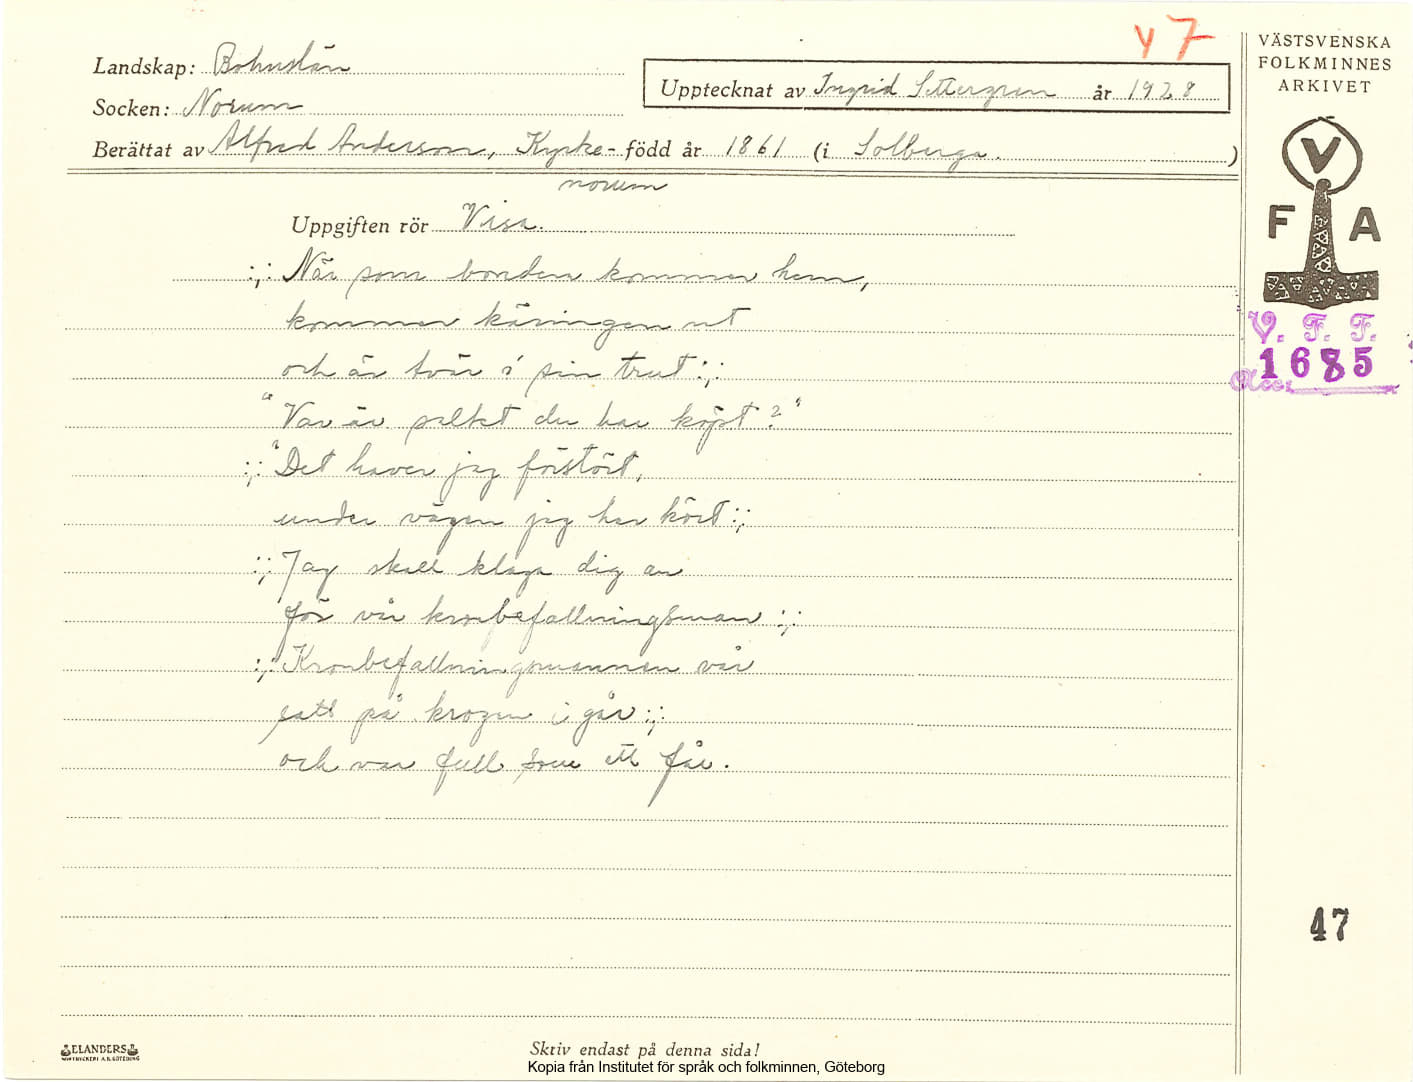 Y 7
Landskap: Bohuslän
Socken: Norum
Upptecknat av Ingrid Settergren år 1928
Berättat av Alfred Anderson, Kyrke- född år 1861 (i Solberga.)
norum
Uppgiften rör Visa.
:,: När som bonden kommer hem,
kommer käringen ut
och är tvär i sin trut :,:
"Var är saltet du har köpt?"
:,: "Det haver jag förstört,
under vägen jag har kört :,:
:,: Jag skall klaga dig an
för vår kronbefallningsman :,:
:,: Kronbefallningsmannen vår
satt på krogen i går :,:
och var full som ett får.
VÄSTSVENSKA
FOLKMINNES
ARKIVET
V
F A
V. F. F.
1685
Acc.
47
ELANDERS
Skriv endast på denna sida!
Kopia från Institutet för språk och folkminnen, Göteborg